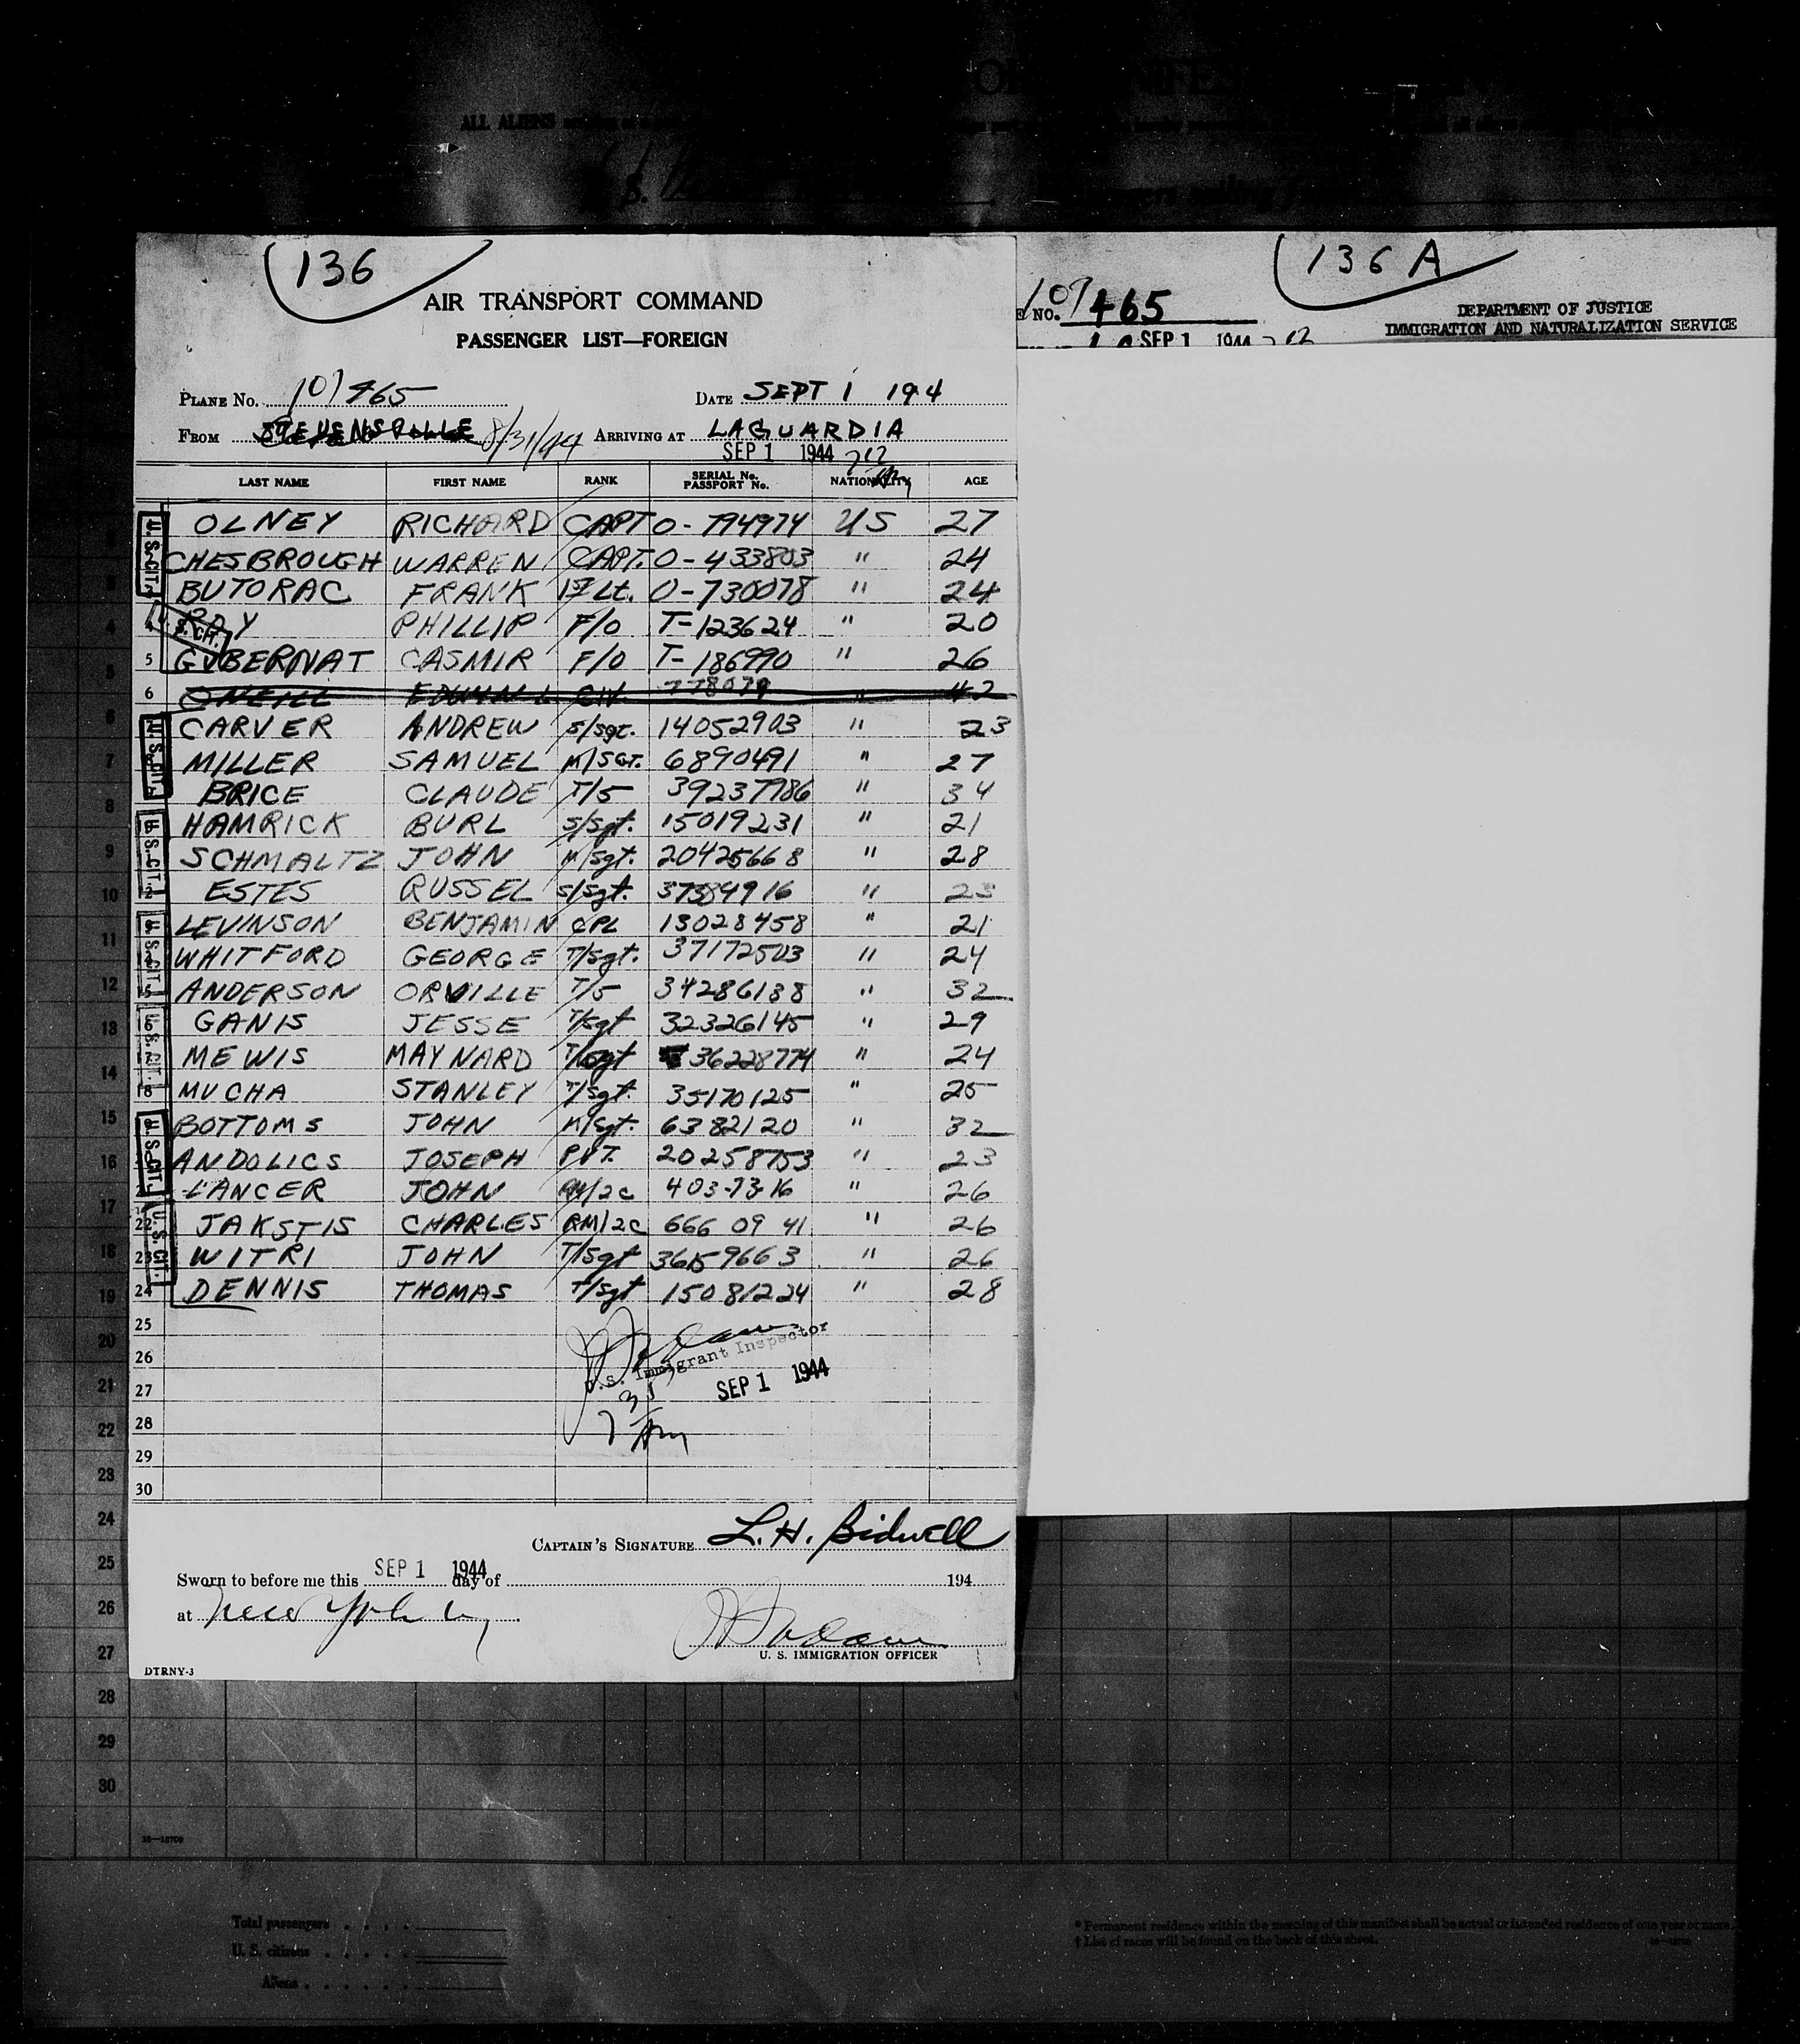 ALL ALIENS
136
136 A
AIR TRANSPORT COMMAND
PASSENGER LIST—FOREIGN
NO. 107465
DEPARTMENT OF JUSTICE
IMMIGRATION AND NATURALIZATION SERVICE
SEP 1 1944 712
PLANE NO. 107465 DATE SEPT 1 1944
FROM STEVENSVILLE 8/31/44 ARRIVING AT LAGUARDIA
SEP 1 1944 712
LAST NAME FIRST NAME RANK SERIAL No. PASSPORT No. NATIONALITY AGE
OLNEY RICHARD CAPT O-794974 US 27
CHESBROUGH WARREN CAPT. O-433803 " 24
BUTORAC FRANK 1st Lt. O-730078 " 24
4 ROY PHILLIP F/O T-123624 " 20
5 GUBERNAT CASMIR F/O T-186990 " 26
6 O'NEILL EDWIN L CIV. 778079 " 42
CARVER ANDREW S/Sgt. 14052903 " 23
MILLER SAMUEL M/SGT. 6890491 " 27
BRICE CLAUDE T/5 39237986 " 34
HAMRICK BURL S/Sgt. 15019231 " 21
SCHMALTZ JOHN M/Sgt. 20425668 " 28
ESTES RUSSEL S/Sgt. 37384916 " 23
LEVINSON BENJAMIN CPL 13028458 " 21
WHITFORD GEORGE T/Sgt. 37172503 " 24
15 ANDERSON ORVILLE T/5 34286188 " 32
GANIS JESSE T/Sgt 32326145 " 29
MEWIS MAYNARD T/Sgt 36228774 " 24
18 MUCHA STANLEY T/Sgt. 35170125 " 25
BOTTOMS JOHN M/Sgt. 6382120 " 32
ANDOLICS JOSEPH PVT. 20258753 " 23
LANCER JOHN RM/2C 403-73-16 " 26
22 JAKSTIS CHARLES RM/2C 666 09 41 " 26
23 WITRI JOHN T/Sgt 36159663 " 26
24 DENNIS THOMAS T/Sgt 15081224 " 28
U. S. CIT.
U. S. CIT.
U. S. CIT.
U. S. CIT.
U. S. CIT.
U. S. CIT.
U. S. CIT.
U. S. CIT.
25
26
27
28
29
30
U.S. Immigrant Inspector
SEP 1 1944
CAPTAIN'S SIGNATURE L.H. Bidwell
Sworn to before me this SEP 1 1944 day of 194
at New York Ny
U. S. IMMIGRATION OFFICER
DTRNY-3
4
5
6
7
8
9
10
11
12
13
14
15
16
17
18
19
20
21
22
23
24
25
26
27
28
29
30
Total passengers
U. S. citizens
Aliens
* Permanent residence within the meaning of this manifest shall be actual or intended residence of one year or more.
† List of races will be found on the back of this sheet.